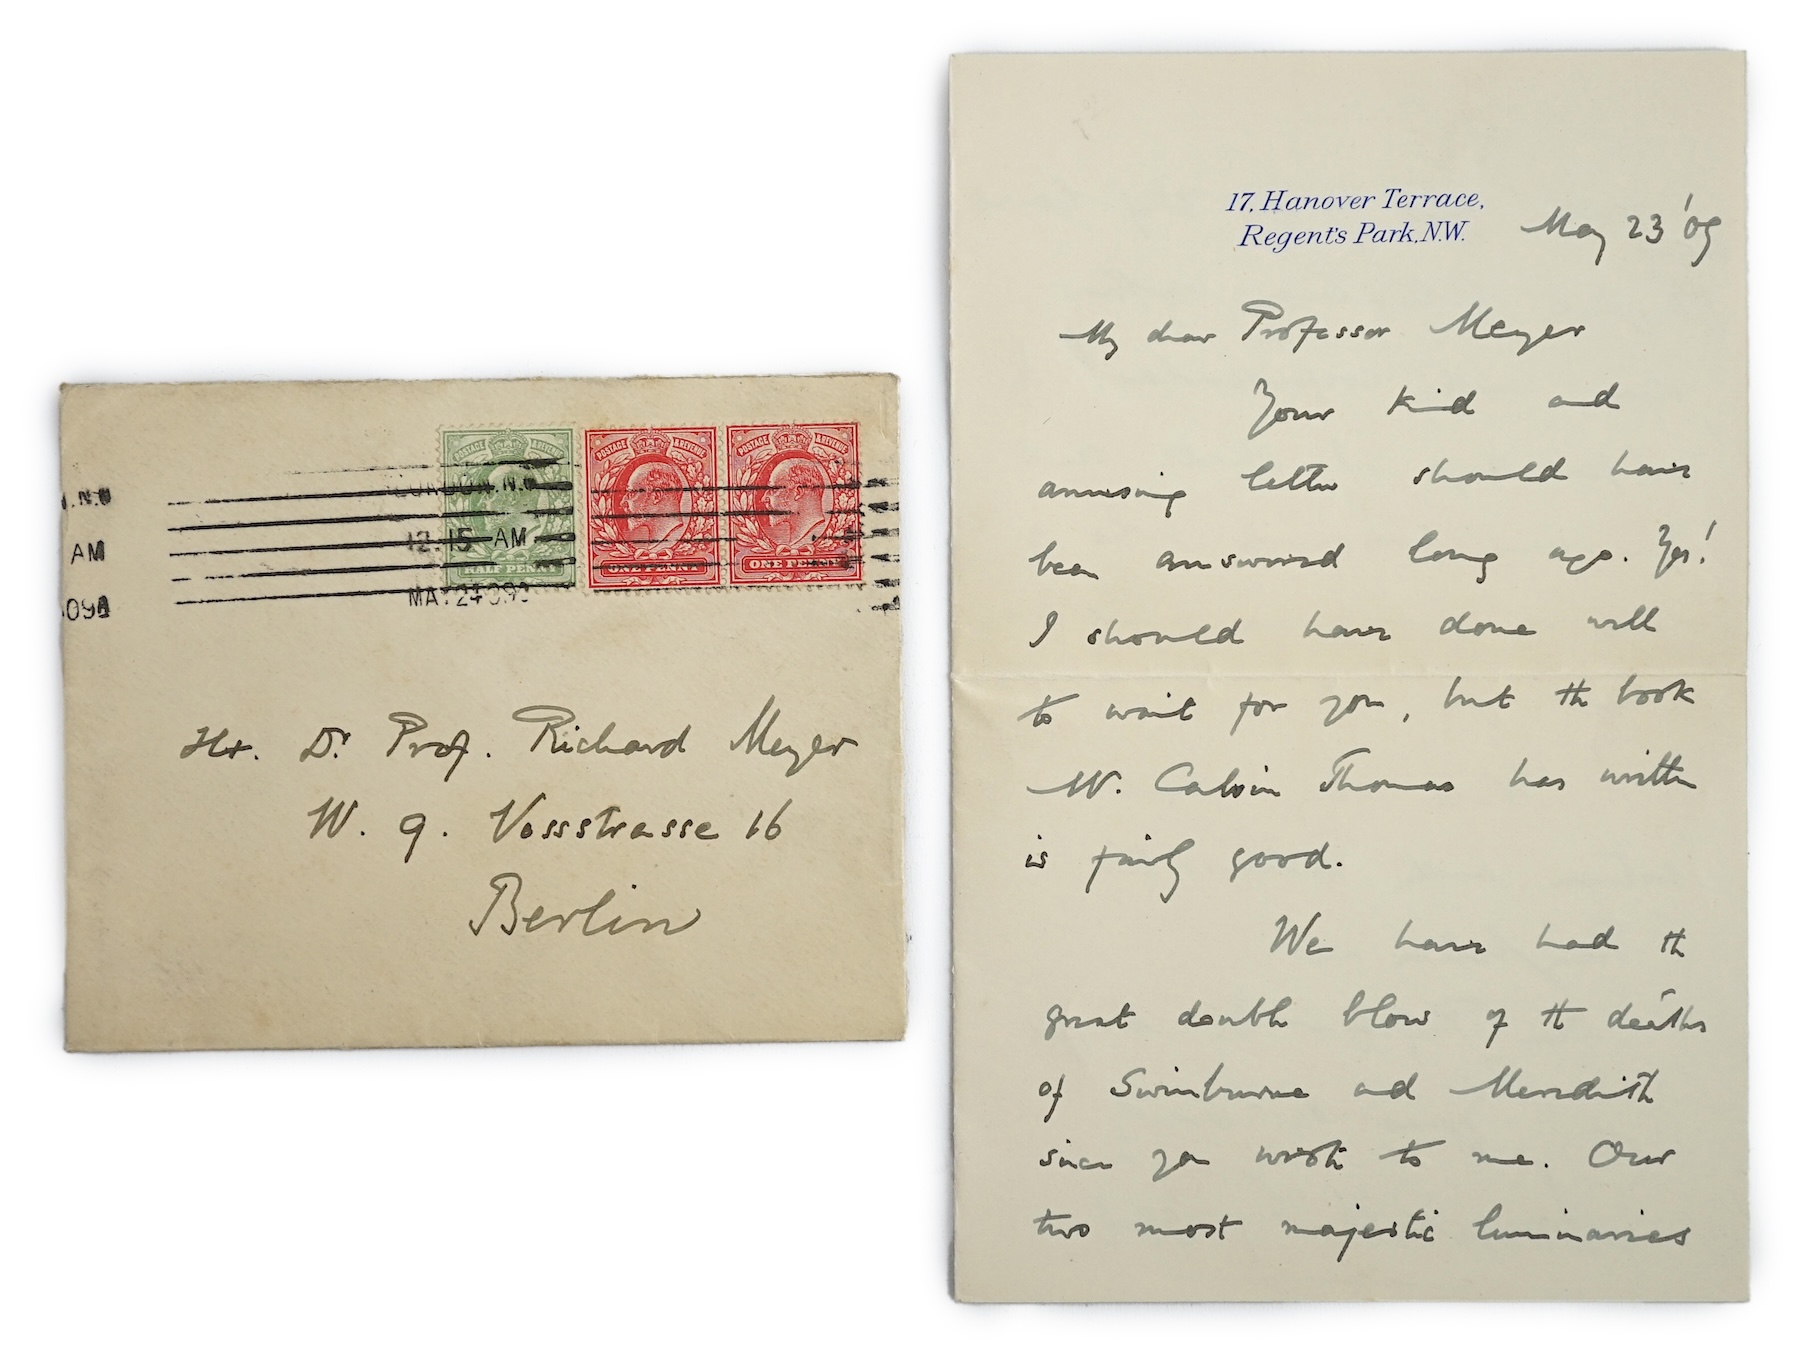 .N.W
AM
09A
LONDON.N.W
12.15 AM
MAY 24 09
POSTAGE & REVENUE
HALF PENNY
POSTAGE & REVENUE
ONE PENNY
POSTAGE & REVENUE
ONE PENNY
Hr. Dr. Prof. Richard Meyer
W. 9. Vossstrasse 16
Berlin
17, Hanover Terrace,
Regent's Park, N.W.
May 23 '09
My dear Professor Meyer
Your kind and
amusing letter should have
been answered long ago. Yes!
I should have done well
to wait for you, but the book
Mr. Calvin Thomas has written
is fairly good.
We have had the
great double blow of the deaths
of Swinburne and Meredith
since you wrote to me. Our
two most majestic luminaries